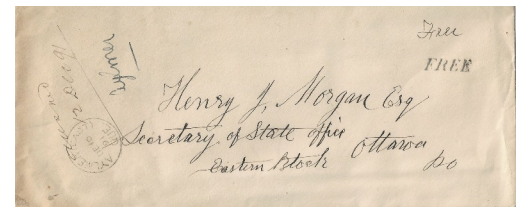 Free
FREE
Henry J. Morgan Esq
Secretary of State office
Eastern Block Ottawa
Do
Aylmer
12 Dec 91